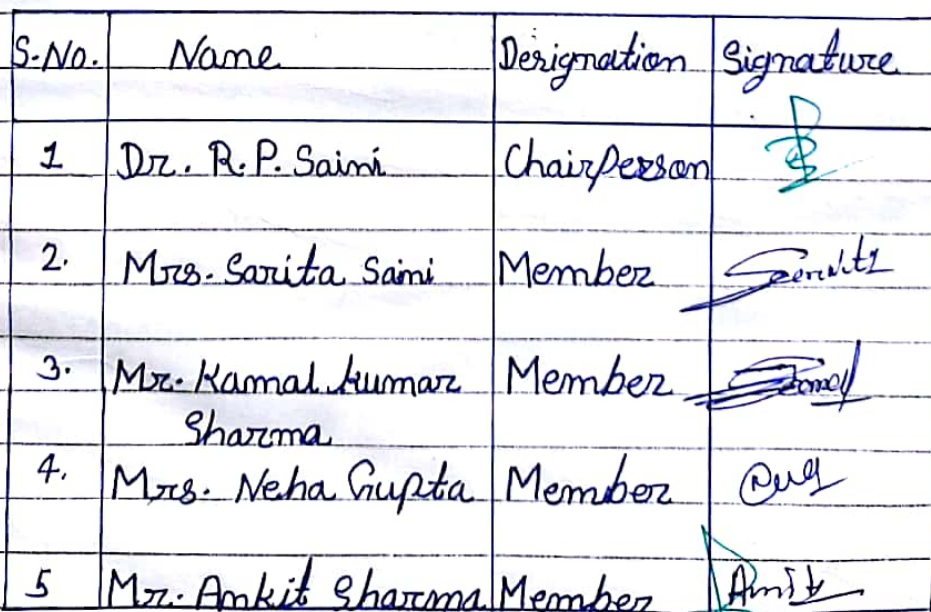 S.No. Name Designation Signature
1 Dr. R.P. Saini Chairperson
2. Mrs. Sarita Saini Member
3. Mr. Kamal Kumar Member
Sharma
4. Mrs. Neha Gupta Member
5 Mr. Ankit Sharma Member